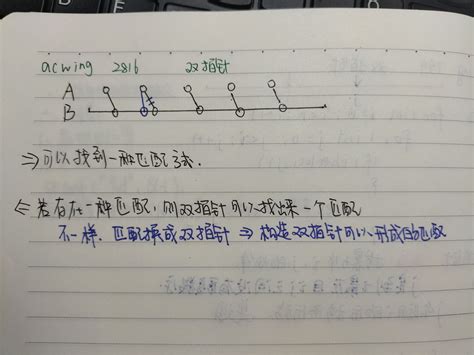 acwing 2816 双指针
A
B
⇒可以找到一种匹配方式.
⇐若存在一种匹配,则双指针可以找出来一个匹配
不一样.匹配换成双指针⇒构造双指针可以形成的匹配